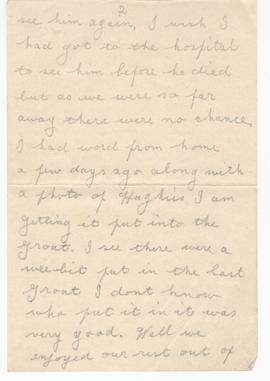 2
see him again, I wish I
had got to the hospital
to see him before he died
but as we were so far
away there were no chance.
I had word from home
a few days ago along with
a photo of Hughies I am
getting it put into the
Groat. I see there were a
wee-bit put in the last
Groat I dont know
who put it in it was
very good. Well we
enjoyed our rest out of